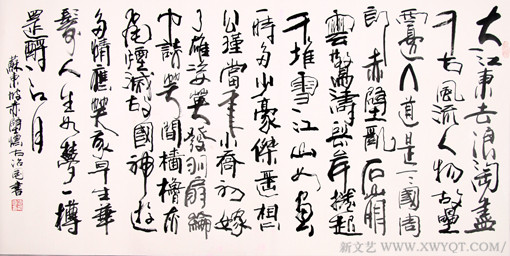 大江東去浪淘盡
千古風流人物故壘
西邊人道是三國周
郎赤壁亂石崩
雲驚濤裂岸捲起
千堆雪江山如畫
一時多少豪傑遙想
公瑾當年小喬初嫁
了雄姿英發羽扇綸
巾談笑間檣櫓灰
飛煙滅故國神遊
多情應笑我早生華
髮人生如夢一樽
還酹江月
蘇東坡赤壁懷古治民書
新文艺 WWW.XWYQT.COM